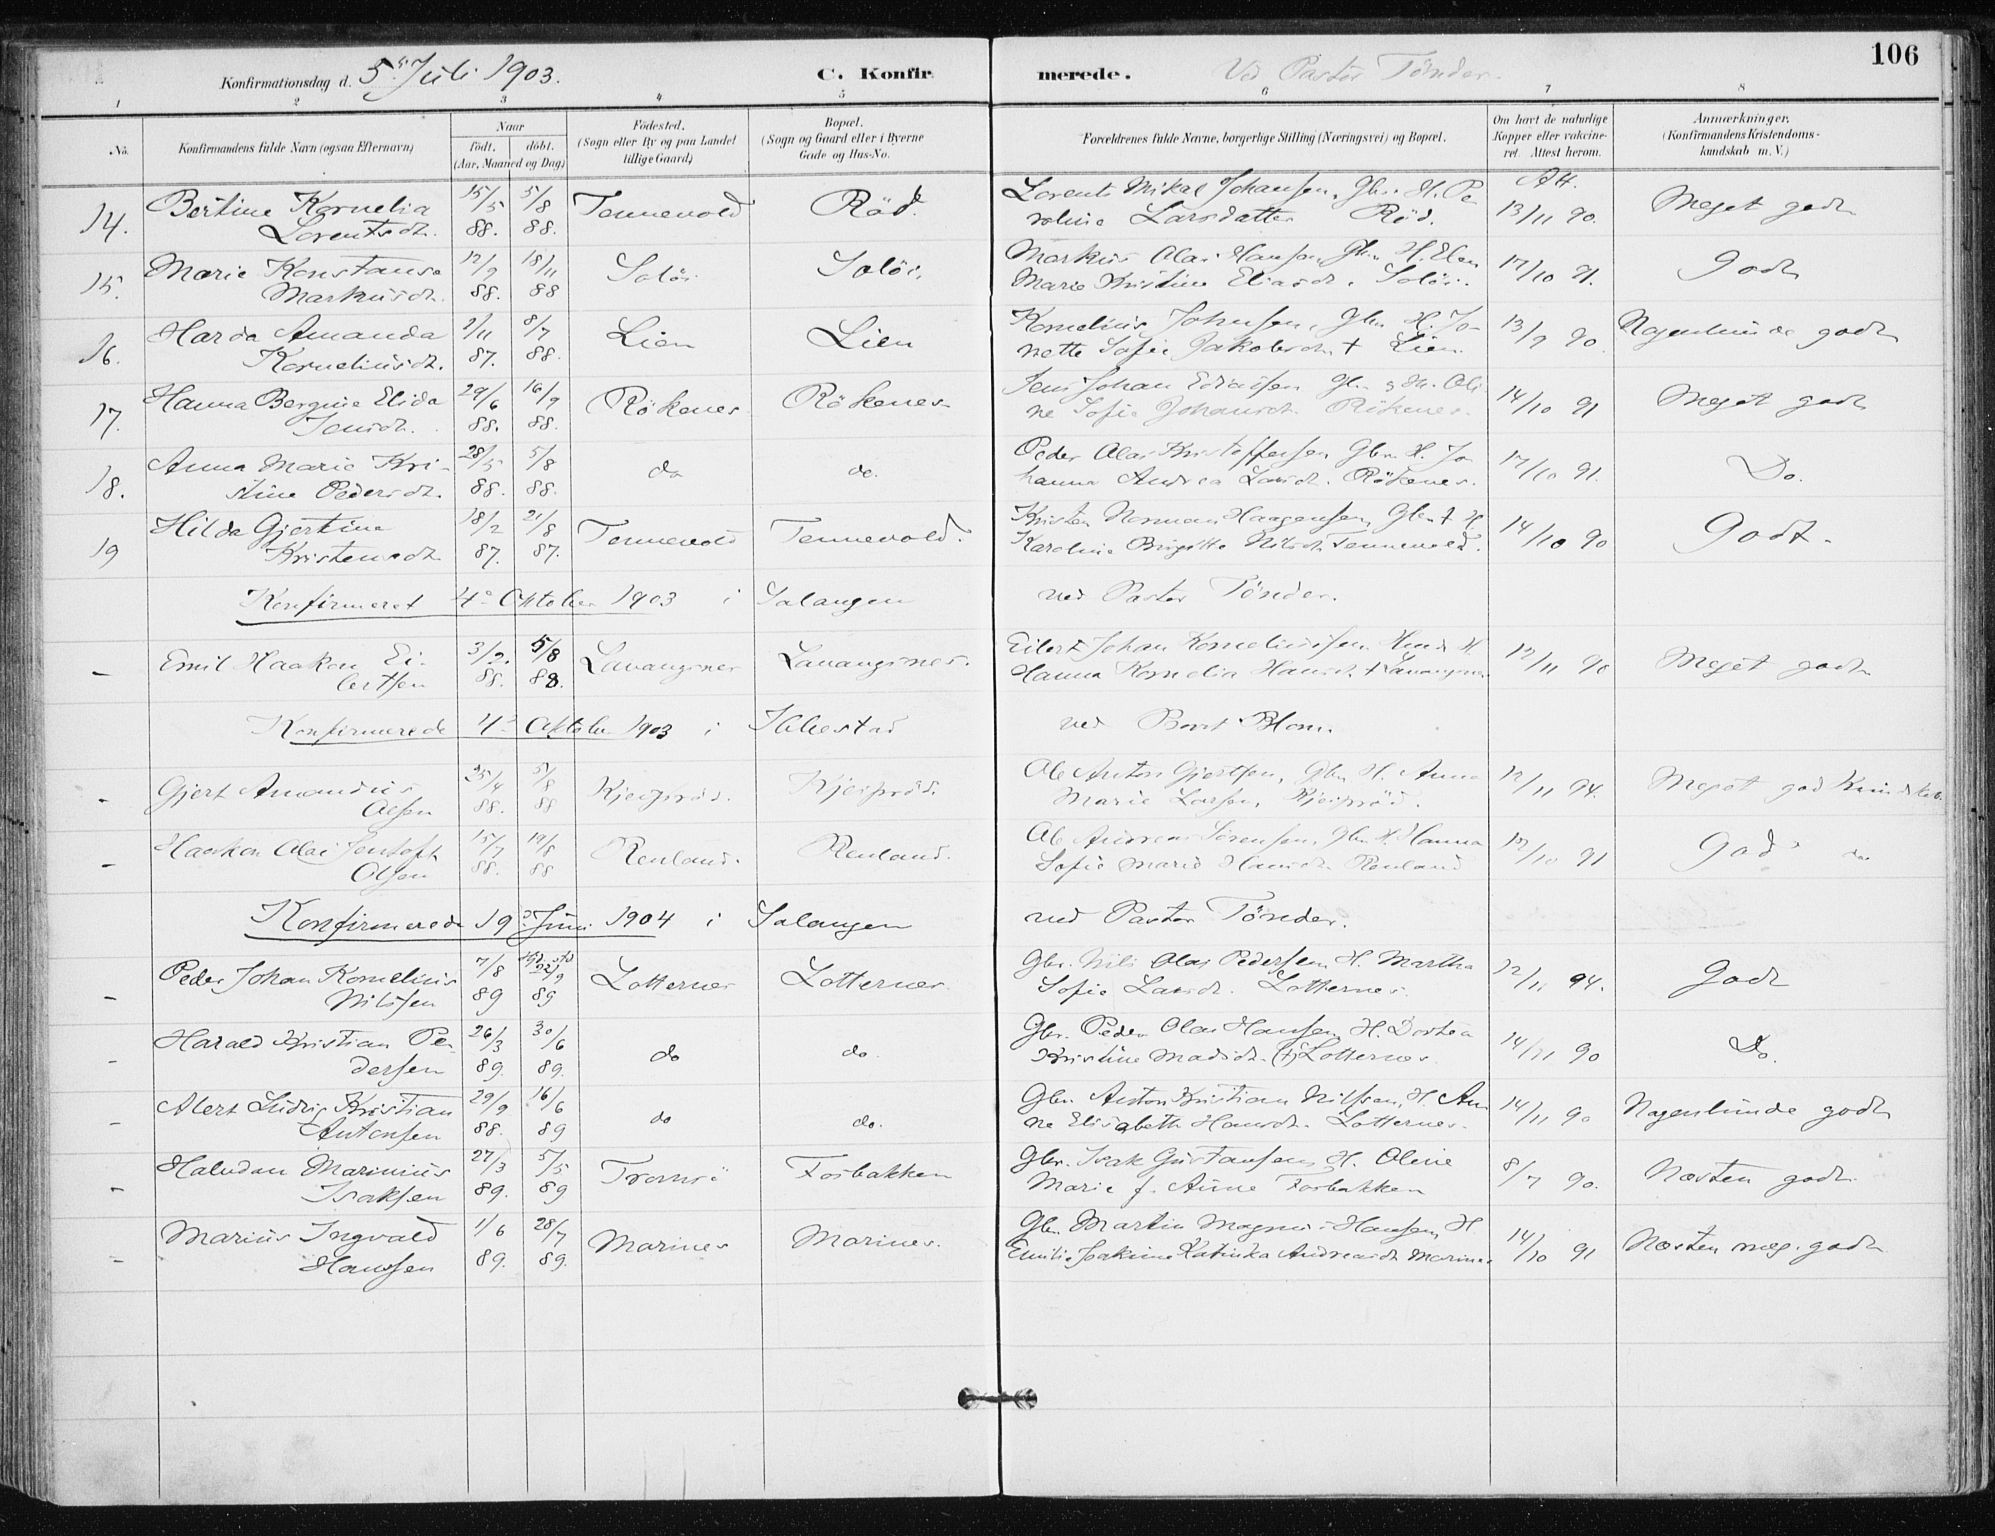 106
Konfirmationsdag d. 5. Juli 1903. C. Konfirmerede. Ved Pastor Tønder.
1 2 3 4 5 6 7 8
No. Konfirmandens fulde Navn (ogsaa Efternavn) Naar født. døbt. (Aar, Maaned og Dag) Fødested. (Sogn eller By og paa Landet tillige Gaard) Bopæl. (Sogn og Gaard eller i Byerne Gade og Hus-No. Forældrenes fulde Navne, borgerlige Stilling (Næringsvei) og Bopæl. Om havt de naturlige Kopper eller vakcineret. Attest herom. Anmærkninger. (Konfirmandens Kristendomskundskab m. V.)
14. Bertine Kornelia 15/5 5/8 Tennevold Röd. Lorents Mikal Johansen, Gbr. H. Pe- Att. 13/11 90. Meget godt
Lorentsdt. 88. 88. roline Larsdatter Röd.
15. Marie Konstanse 12/9 18/11 Salöi Salöi. Markus Olai Hansen, Gbr. H. Elen 17/10 91. Godt
Markusdt. 88. 88 Marie Kristine Eliasdt. Salöi.
16. Harda Amanda 2/11 8/7 Lien Lien Kornelius Johnsen, Gbr. H. Jo- 13/9 90. Nogenlunde godt
Korneliusdt. 87. 88. nette Sofie Jakobsdt. † Lien.
17. Hanna Bergine Elida 29/6 16/9 Rökenes Rökenes Jens Johan Ediassen Gbr. & H. Oli- 14/10 91 Meget godt
Jensdt. 88. 88. ne Sofie Johansdt. Rökenes.
18. Anna Marie Kri- 28/5 5/8 do do. Peder Olai Kristoffersen Gbr. H. Jo- 17/10 91. Do.
stine Pedersdt. 88. 88. hanna Andrea Larsdt. Rökenes.
19 Hilda Gjertine 18/2 21/8 Tennevold Tennevold. Kristen Norman Haagensen, Gbr. † H. 14/10 90 Godt.
Kristensdt. 87. 87. Karoline Birgitte Nilsdt. Tennevold.
Konfirmeret 4de Oktober 1903 i Salangen ved Pastor Tönder.
- Emil Haakon Ei- 3/2. 5/8 Lavangsnes Lavangsnes. Eilert Johan Korneliussen H 12/11 90 Meget godt
lertsen 88. 88. Hanna Kornelia Hansdt. † Lavangsnes
Konfirmerede 4de Oktober 1903 i Ibbestad ved Blom.
- Gjert Amandus 25/4 5/8 Kjeipröd. Kjeipröd. Ole Anton Gjertsen, Gbr. H. Anna 12/11 94. Meget god Kundskab.
Olsen 88. 88 Marie Larsen, Kjeipröd.
- Haakon Olai Jentoft 15/7 19/8 Renland. Renland. Ole Andreas Sörensen, Gbr. H. Hanna 12/10 91 God do
Olsen 88. 88 Sofie Marie Hansdt. Renland
Konfirmerede 19de Juni 1904 i Salangen ved Pastor Tönder.
- Peder Johan Kornelius 7/8 22/9 Lotternes Lotternes. Gbr. Nils Olai Pedersen H. Martha 12/11 94. Godt
Nilssen 89 89 Sofie Larsdt. Lotternes.
- Harald Kristian Pe- 26/3 30/6 do do. Gbr. Peder Olai Hansen, H. Dortea 14/11 90 Do.
dersen 89. 89. Kristine Madsdt. (†) Lotternes
- Alert Ludvig Kristian 29/9 16/6 do do. Gbr. Anton Kristian Nilssen, H. An- 14/11 90 Nogenlunde godt
Antonsen 88. 89 ne Elisabeth Hansdt. Lotternes.
- Halvdan Marinius 27/3 5/5 Tromsö Fosbakken Gbr. Isak Gustavsen, H. Oline 8/7 90. Næsten godt.
Isaksen 89. 89 Marie f. Aune Fosbakken
- Marius Ingvald 1/6 28/7 Marines Marines. Gbr. Martin Magnus Hansen, H. 14/10 91 Næsten meg. godt
Hansen 89. 89. Emilie Joakime Katinka Andreasdt Marines